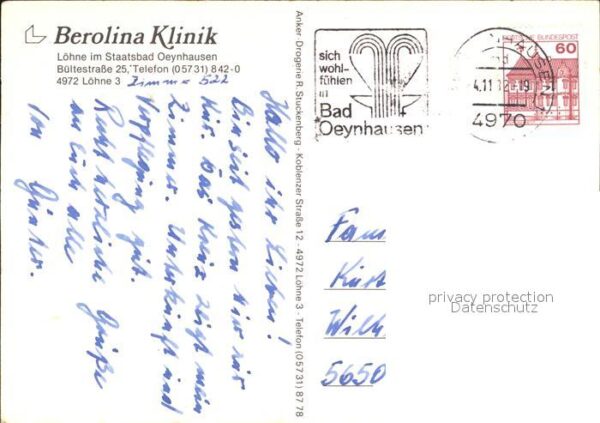 Berolina Klinik
Löhne im Staatsbad Oeynhausen
Bültestraße 25, Telefon (05731) 842-0
4972 Löhne 3 Zimmer 522
Hallo ihr Lieben!
Bin seit gestern hier zur
Kur. Das Kreuz zeigt mein
Zimmer. Unterkunft und
Verpflegung gut.
Recht herzliche Grüße
an Euch alle
von Günter.
Anker-Drogerie R. Stuckenberg - Koblenzer Straße 12 - 4972 Löhne 3 - Telefon (05731) 8778
sich
wohl-
fühlen
in
Bad
Oeynhausen
4.11.82-19
4970
DEUTSCHE BUNDESPOST
60
Fam
Kurt
Wilh
5650
privacy protection
Datenschutz